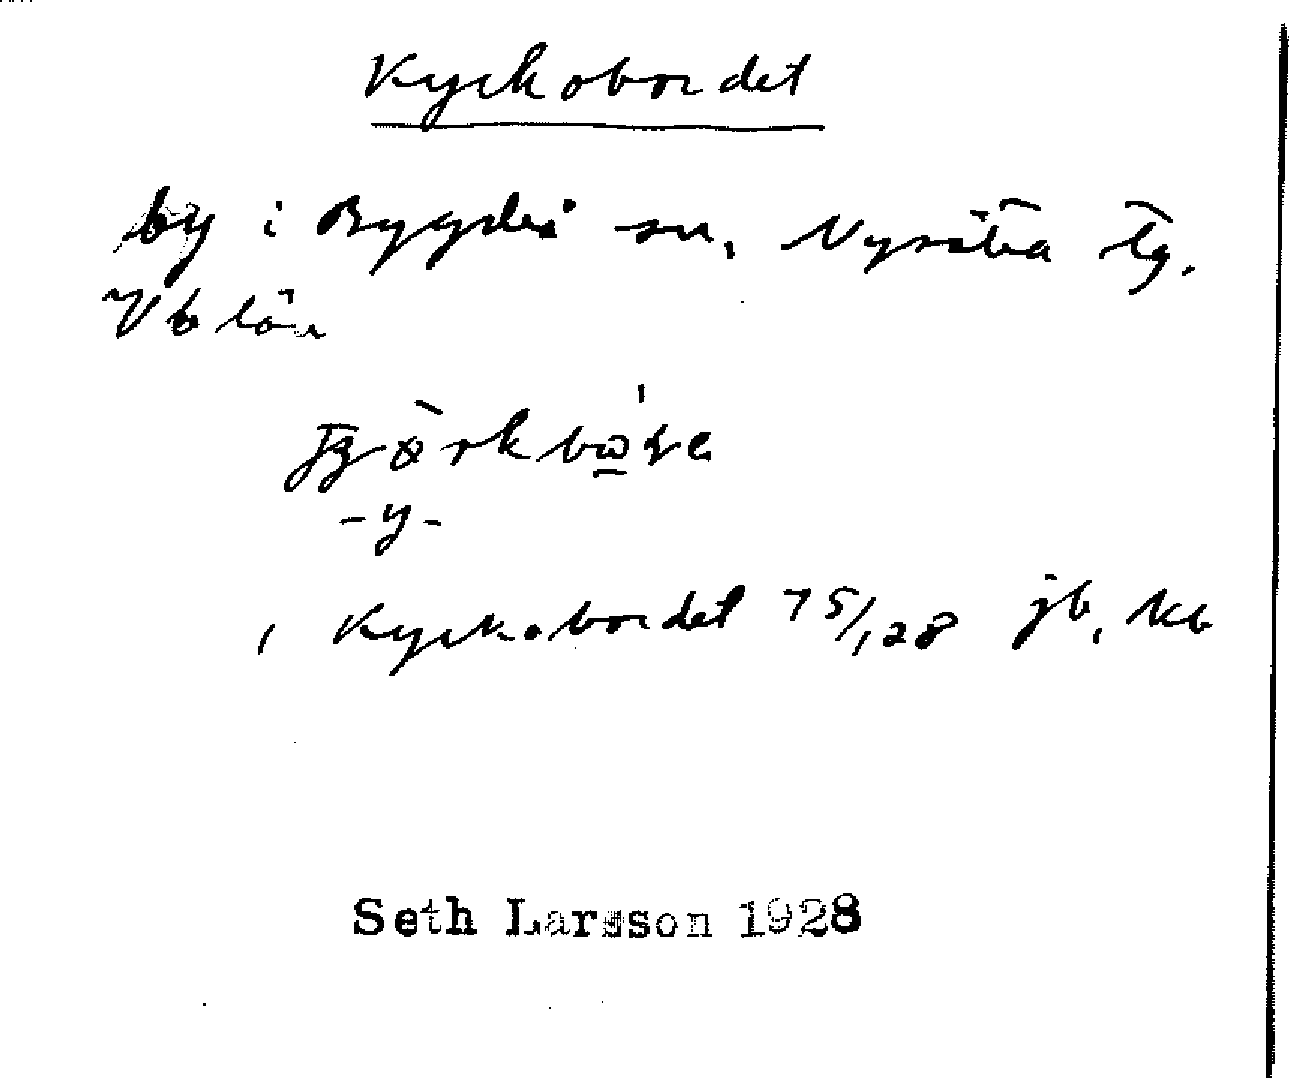 Kyrkobordet
by i Bygdeå sn, Nysätra tg.
Vb län
-y-
Kyrkobordet 75/128 jb, kb
Seth Larsson 1928